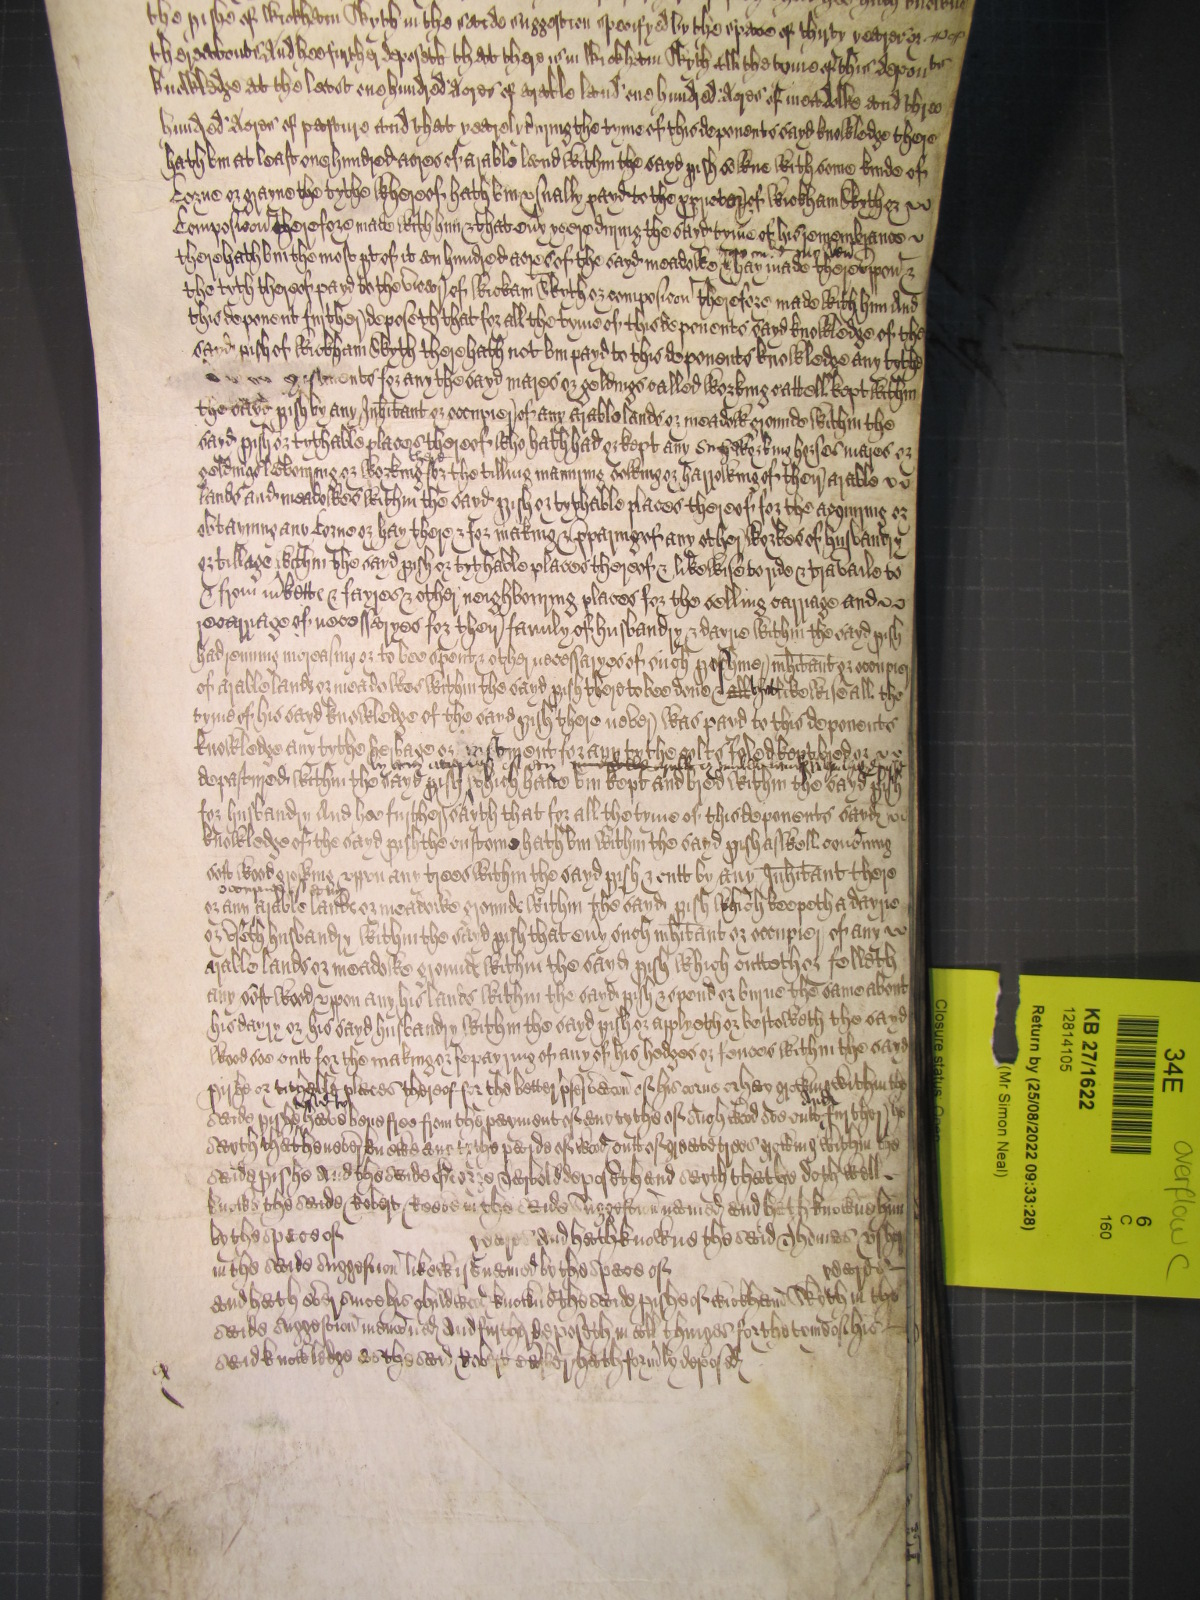 the pishe of Wickham Skyth in the saide suggestion specifyed by the space of thirty yeares or
thereabouts And hee further deposeth that there is in Wickham Skyth all the tyme of this depon ts
knowledge at the least one hundred Acres of arable land one hundred Acres of meadowe and three
hundred Acres of pasture and that yearely during the tyme of this deponents sayd knowledge there
hath bin at least one hundred acres of arable land within the sayd pish sowne with some kinde of
Corne or grayne the tythe whereof hath bin usually payd to the of Wickham Skyth or
Composicon therefore made with him & that euy yeere during the sayd tyme of his remembrance
there hath bin the most pt of it an hundred acres of the sayd meadowe & hay made thereuppon &
the tyth thereof payd to the vicar of Wickam Skyth or composicon therefore made with him And
this deponent further deposeth that for all the tyme of this deponents sayd knowledge of the
sayd pish of Wickham Skyth there hath not bin payd to this deponents knowledge any tythe
for any the sayd mares or geldings called working cattell kept within
the sayd pish by any Inhitant or occupier of any arable lands or meadow grounde within the
sayd pish or tythable places thereof who hath had or kept any such working horses mares or
geldings labouring or working for the tilling manuring sowing or harrowing of their arable
lands and meadowes within the sayd pish or tythable places thereof for the acquiring or
obtayning any Corne or hay there & for making & pparing of any other workes of husbandry
or tillage within the sayd pish or tythable places thereof & likewise to ride & travaile to
& from mketts & fayres & other neighbouring places for the selling carriage and
recarriage of necessaryes for their family of husbandry & dayrie within the sayd pish
had renning increasing or to bee spent & other necessaryes of such pishiner inhitant or occupier
of arable lands or meadowes within the sayd pish there to bee done & likewise all the
tyme of his sayd knowledge of the sayd pish there never was payd to this deponents
knowledge any tythe herbage or for any tythe colts foled kept bred or
depastured within the sayd pish which have bin kept and bred within the sayd pish
for husbandry And hee further sayth that for all the tyme of this deponents sayd
knowledge of the sayd pish the custome hath bin within the sayd pish aswell concning
soft wood growing uppon any trees within the sayd pish & cutt by any Inhitant there
occupier
or any arable lands or meadowe grounde within the sayd pish which keepeth a dayrie
or useth husbandry within the sayd pish that euy such inhitant or occupier of any
arable lands or meadowe grounde within the sayd pish which cutteth or felleth
any soft wood uppon any his lands within the sayd pish & spend or burne the same about
his dayry or his sayd husbandry within the sayd pish or applyeth or bestoweth the sayd
wood soe cutt for the making or repayring of any of his hedges or fences within the sayd
pishe or tithable places thereof for the better preservacon of his corne or hay growing within the
saide pishe have bene free from the payement of any tythe of such wood soe cutt And further he
sayth that he never knewe any tythe payde of wood cutt of greate trees growing within the
saide pishe And the saide George deposeth and sayth that he doth well
knowe the saide Robert Reeve in the saide suggestion named and hath knowne him
by the space of yeares And hath knowne the said Thomas
in the saide suggestion likewise named by the space of yeares
and hath ever since his childhood knowne the saide pishe of Wickham Skyth in the
saide suggestion menconed And further deposeth in all thinges for the tyme of his
said knowledge as the said Robt hath formly deposed
34E
overflow C
6
C
160
KB 27/1622
12814105
Return by (25/08/2022 09:33:28)
(Mr Simon Neal)
Closure status: Open